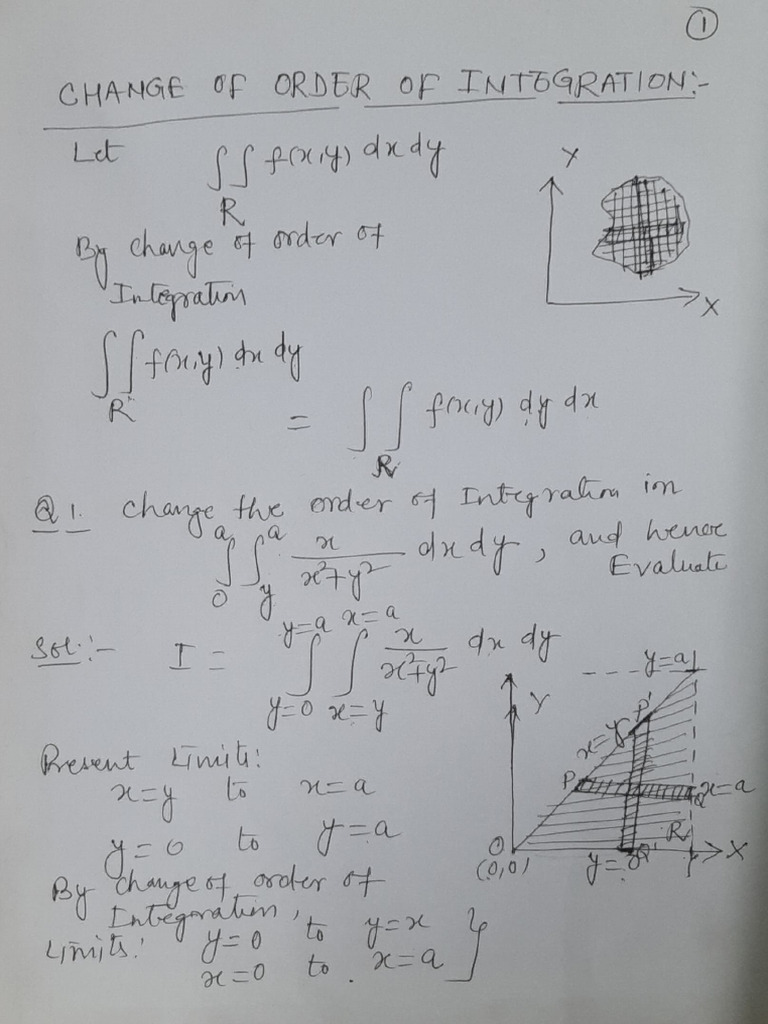 ①
CHANGE OF ORDER OF INTEGRATION:-
Let ∫∫ f(x,y) dx dy
R
Y
X
By change of order of
Integration
∫∫ f(x,y) dx dy
R
= ∫∫ f(x,y) dy dx
R
Q1. change the order of Integration in
∫₀ᵃ ∫ᵧᵃ x/(x²+y²) dx dy, and hence
Evaluate
Sol:- I = ∫_{y=0}^{y=a} ∫_{x=y}^{x=a} x/(x²+y²) dx dy
Present Limits:
x=y to x=a
y=0 to y=a
By change of order of
Integration,
Limits: y=0 to y=x
x=0 to x=a }
Y
y=a
P'
x=y
P
x=a
Q
R
O
(0,0)
y=0
Q'
X